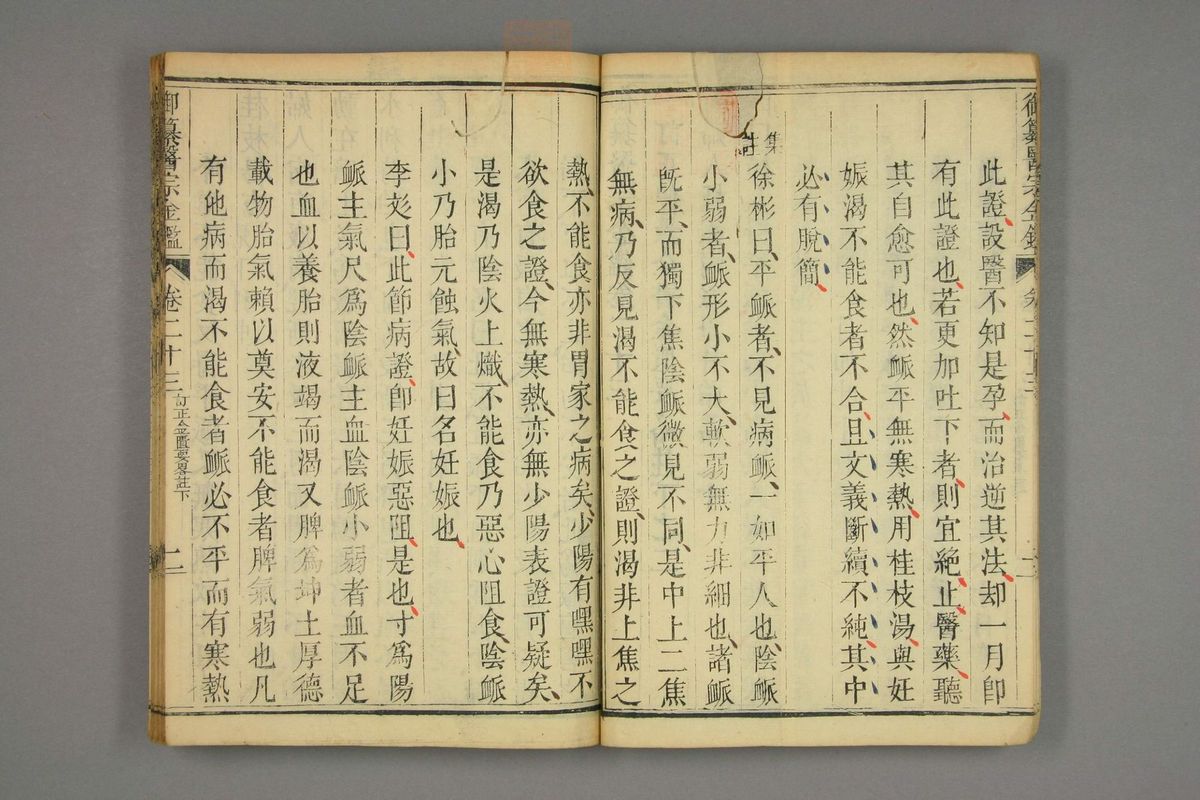 御纂醫宗金鑑 卷二十三 二
此證設醫不知是孕而治逆其法却一月卽
有此證也若更加吐下者則宜絕止醫藥聽
其自愈可也然脈平無寒熱用桂枝湯與妊
娠渴不能食者不合且文義斷續不純其中
必有脫簡
集註
徐彬曰平脈者不見病脈一如平人也陰脈
小弱者脈形小不大軟弱無力非細也諸脈
旣平而獨下焦陰脈微見不同是中上二焦
無病乃反見渴不能食之證則渴非上焦之
熱不能食亦非胃家之病矣少陽有嘿嘿不
欲食之證今無寒熱亦無少陽表證可疑矣
是渴乃陰火上熾不能食乃惡心阻食陰脈
小乃胎元蝕氣故曰名妊娠也
李彣曰此節病證卽妊娠惡阻是也寸爲陽
脈主氣尺爲陰脈主血陰脈小弱者血不足
也血以養胎則液竭而渴又脾爲坤土厚德
載物胎氣賴以奠安不能食者脾氣弱也凡
有他病而渴不能食者脈必不平而有寒熱
御纂醫宗金鑑 卷二十三 訂正金匱要畧註下 二